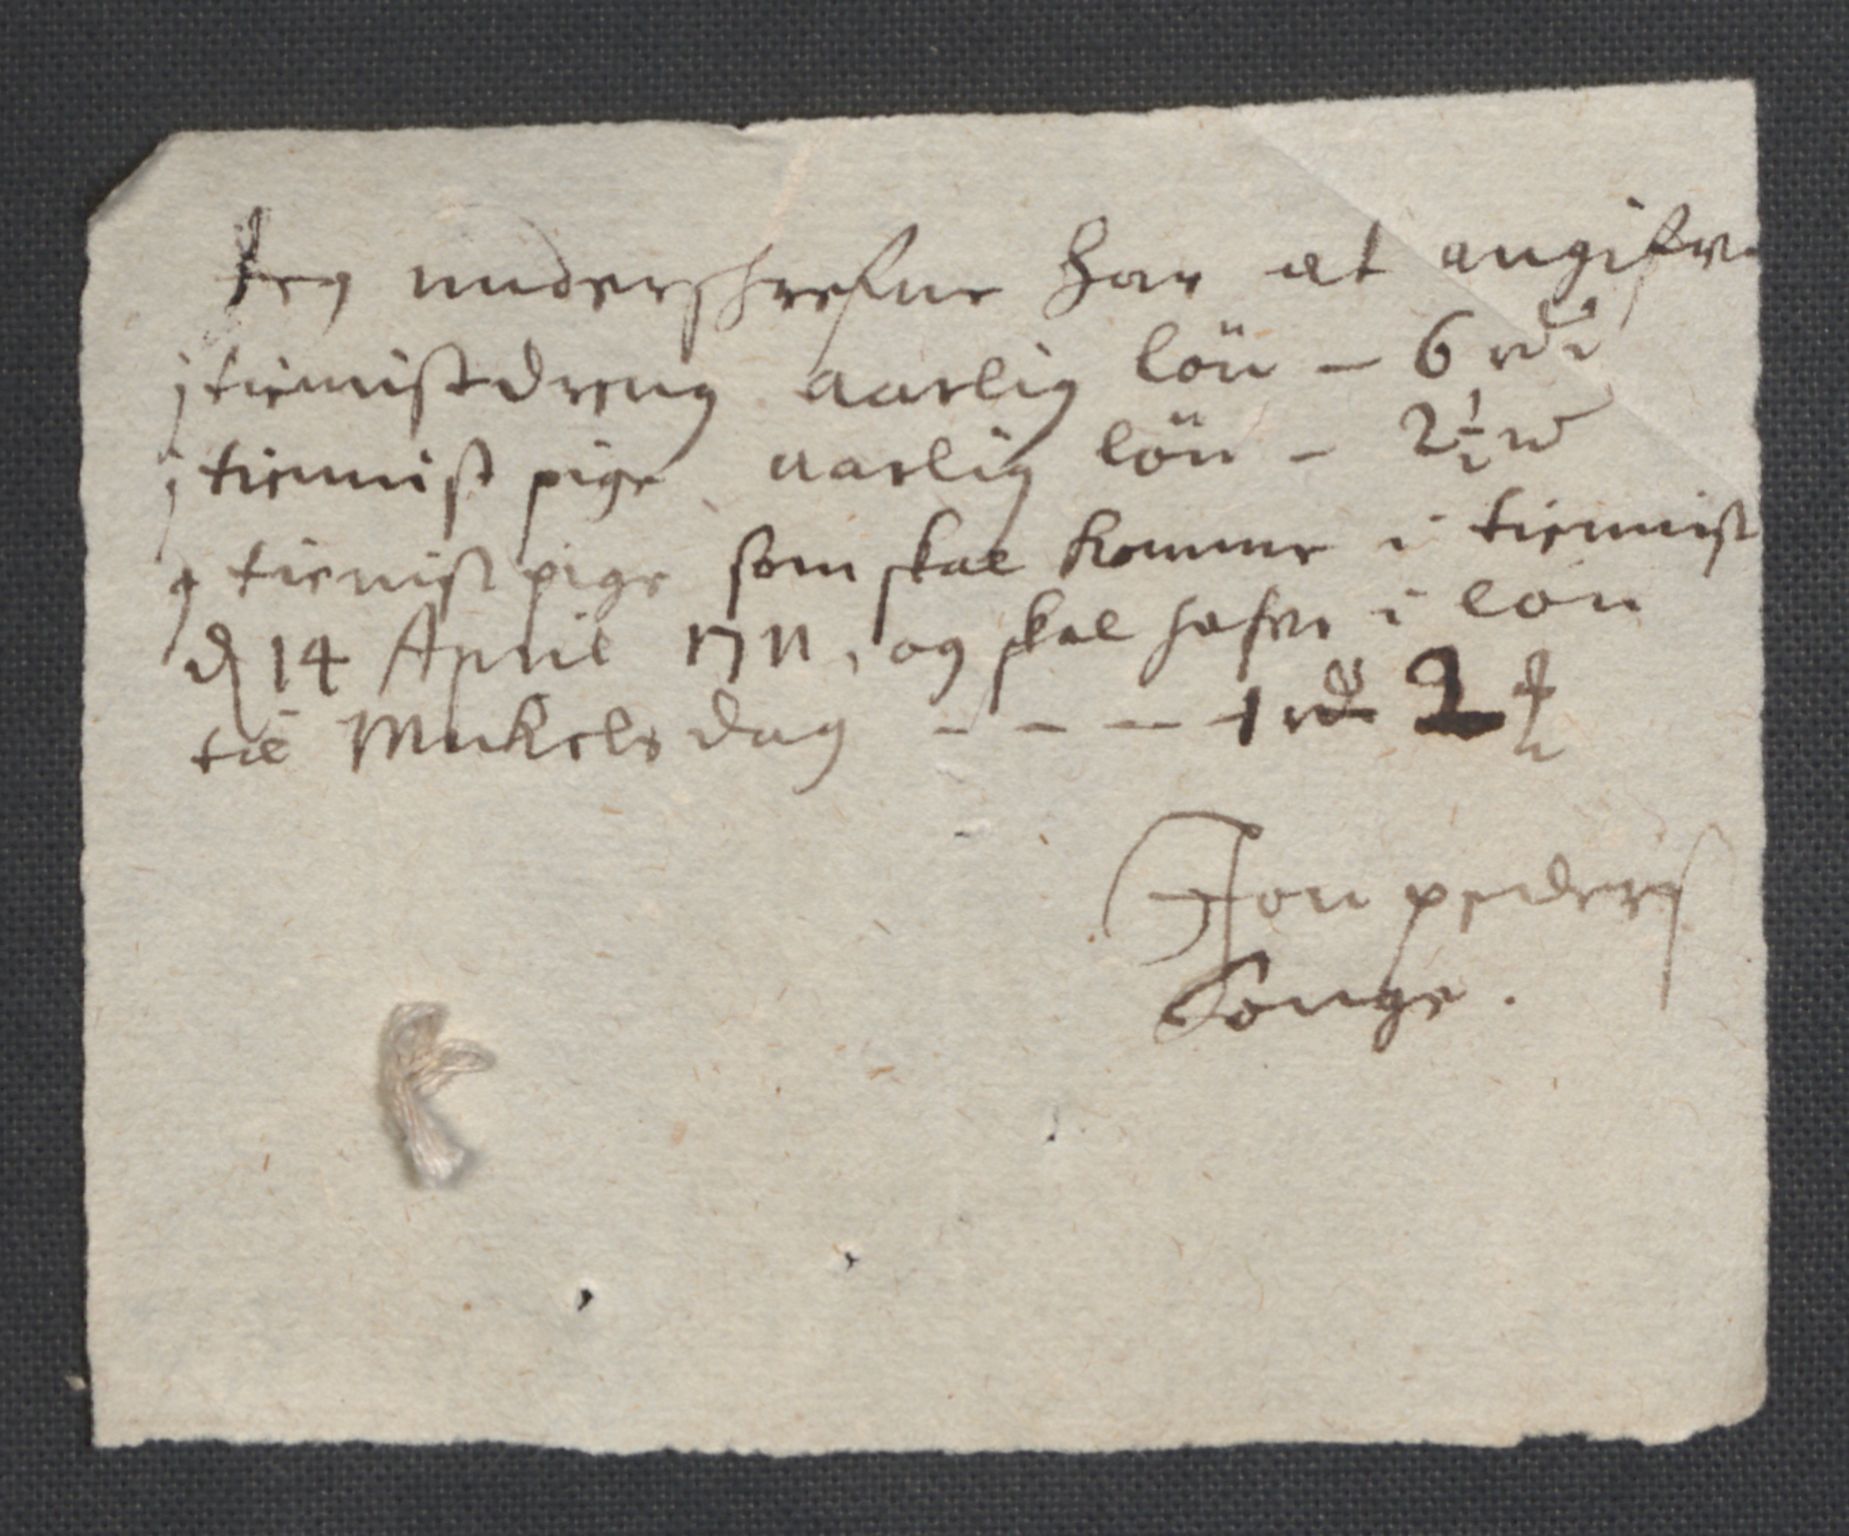 Jeg underskrefne Har at angifve
j tienist dreng aarlig lön – 6 rdr
j tiennist pige aarlig lön – 2½ rd
j tienist pige som skal komme i tiennist
d 14 April 1711, og skal hafve i lön
til Mickels dag – – – – 1 rdr 2 ꝑ
Jon peders
Songe.